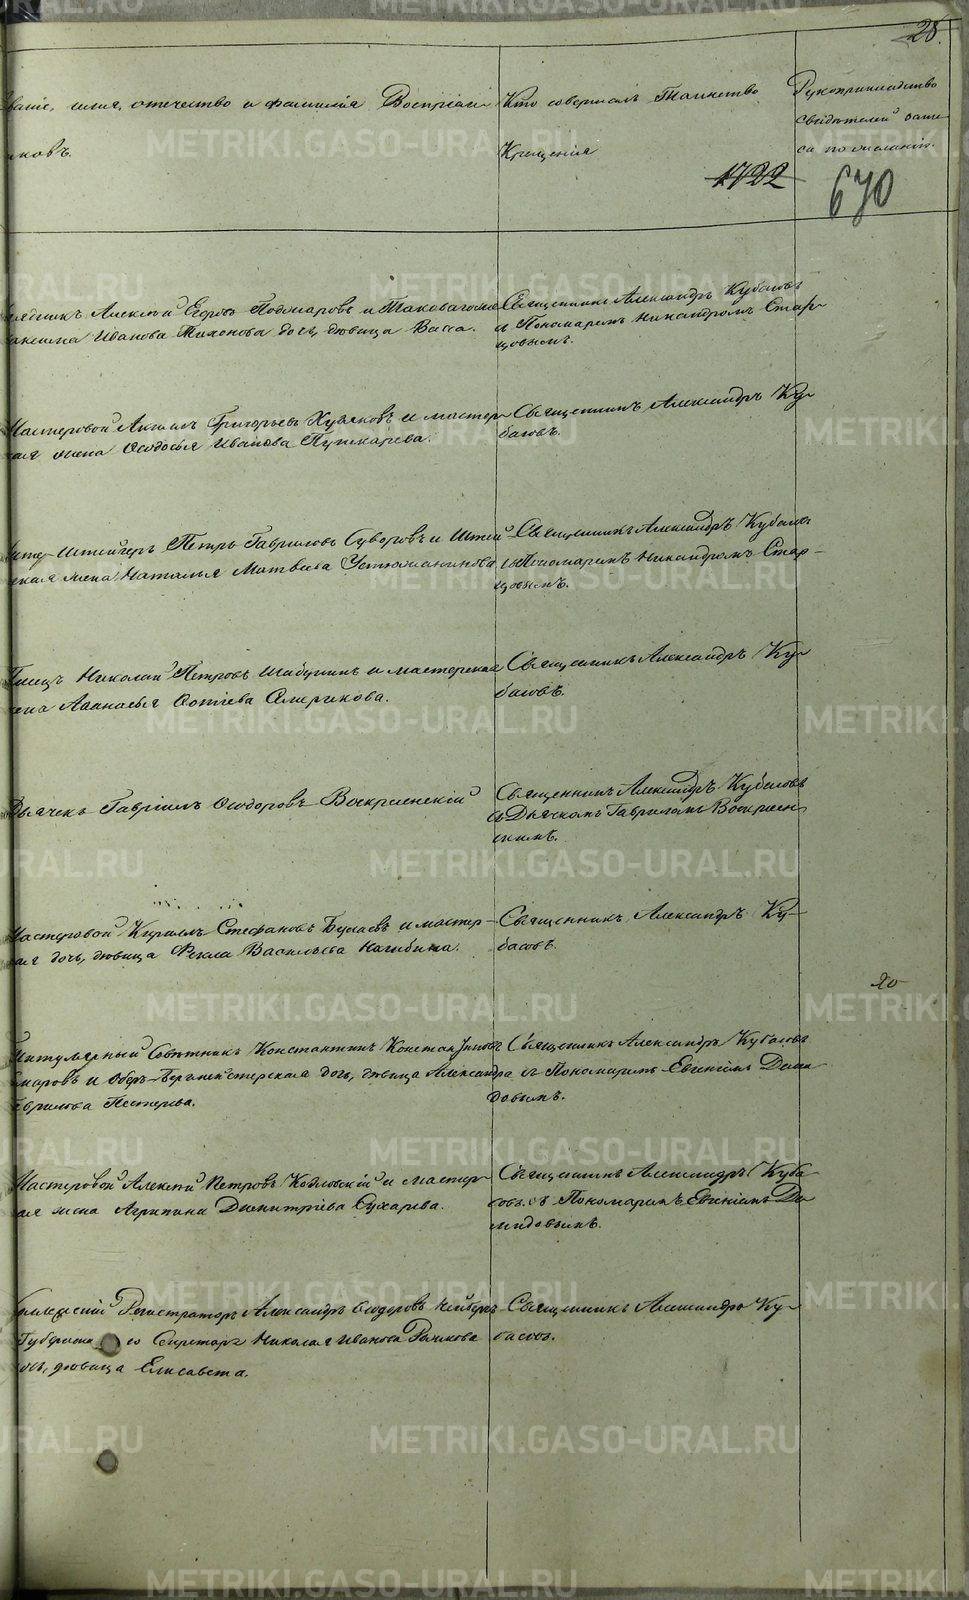 28.
званіе, имя, отчество и фамилія Воспріем-
никовъ.
Кто совершалъ Таинство
Крещенія
Рукоприкладство
свидѣтелей запи-
си по желанію.
1722
670
Алексѣй Егоровъ и
Иванова Тихонова дочь, дѣвица Васса.
Священникъ Александръ Кубасовъ
и Пономаремъ Никандромъ Стар-
цовымъ.
Мастеровой Григорьевъ Худяковъ и мастер-
ская жена Ѳеодосья Иванова Пушкарева.
Священникъ Александръ Ку-
басовъ.
Унтер-Штейгеръ Петръ Гавриловъ Суворовъ и Штей-
жена Наталья Матвѣева Устюжанинова
Священникъ Александръ Кубасовъ
съ Пономаремъ Никандромъ Стар-
цовымъ.
Писецъ Николай Петровъ Шабунинъ и мастерская
жена Аѳанасья Фотіева
Священникъ Александръ Ку-
басовъ.
Дьячекъ Гавріилъ Ѳеодоровъ Воскресенскій
Священникъ Александръ Кубасовъ
съ Дьячкомъ Гавриломъ Воскресен-
скимъ.
Мастеровой Кириллъ Стефановъ и мастер-
ская дочь, дѣвица Ѳекла Васильева Нагибина.
Священникъ Александръ Ку-
басовъ.
Титулярный Совѣтникъ Константинъ Константиновъ
и Оберъ-Бергмейстерская дочь, дѣвица Александра
Гаврилова Пестерева.
Священникъ Александръ Кубасовъ
съ Пономаремъ Евгеніемъ Деми-
довымъ.
Мастеровой Алексѣй Петровъ Козловскій и мастер-
ская жена Агрипина Димитріева Сухарева.
Священникъ Александръ Куба-
совъ съ Пономаремъ Евгеніемъ Де-
мидовымъ.
Коллежскій Регистраторъ Александръ Ѳеодоровъ
Губернскаго Секретаря Николая Иванова
дочь, дѣвица Елисавета.
Священникъ Александръ Ку-
басовъ.
METRIKI.GASO-URAL.RU